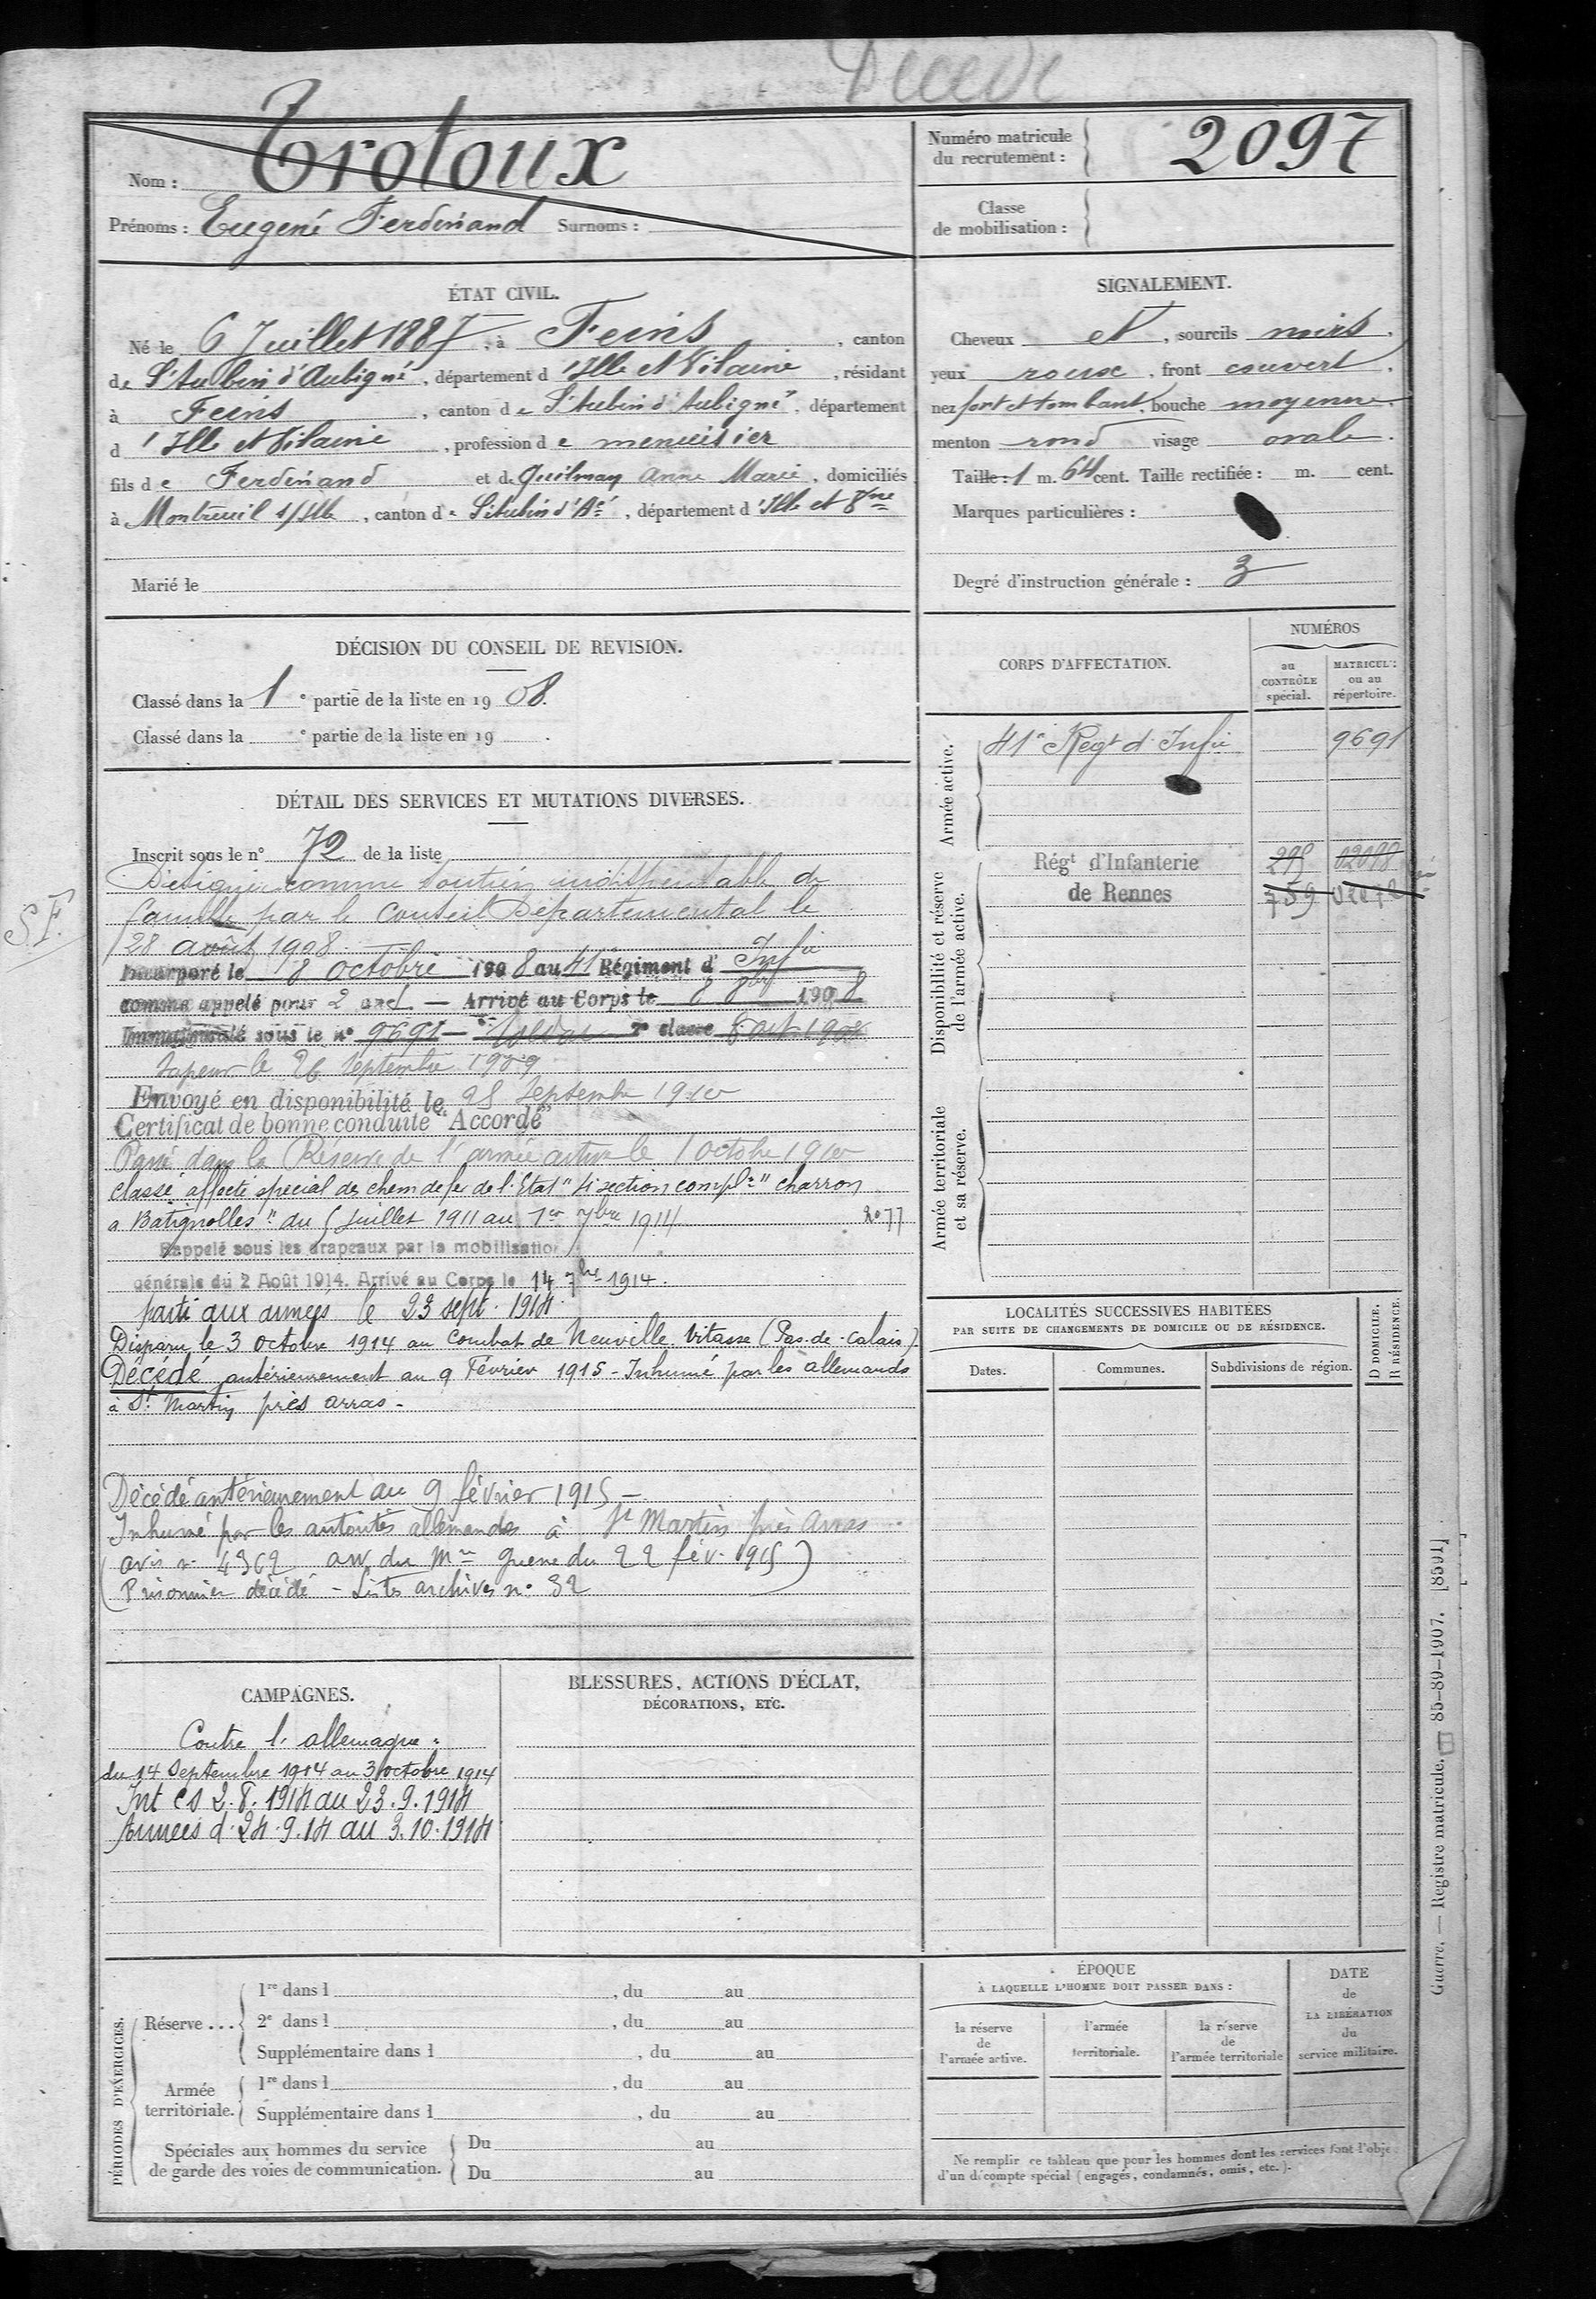 Décédé
Nom : Trotoux
Prénoms : Eugené Ferdinand Surnoms :
Numéro matricule du recrutement : 2097
Classe de mobilisation :
ÉTAT CIVIL.
Né le 6 Juillet 1887, à Feins, canton
de St Aubin d'Aubigné, département d'Ille et Vilaine, résidant
à Feins, canton de St Aubin d'Aubigné, département
d'Ille et Vilaine, profession de menuisier
fils de Ferdinand et de Guilmay Anne Marie, domiciliés
à Montreuil s/Ille, canton de St Aubin d'Aé, département d'Ille et Vne
Marié le
SIGNALEMENT.
Cheveux et, sourcils noirs,
yeux roux, front couvert,
nez fort et tombant, bouche moyenne,
menton rond visage ovale.
Taille : 1 m. 64 cent. Taille rectifiée : m. cent.
Marques particulières :
Degré d'instruction générale : 3
DÉCISION DU CONSEIL DE REVISION.
Classé dans la 1e partie de la liste en 1908.
Classé dans la e partie de la liste en 19 .
DÉTAIL DES SERVICES ET MUTATIONS DIVERSES.
Inscrit sous le n° 72 de la liste
S.F.
Désigné comme soutien indispensable de
famille par le Conseil Départemental le
28 août 1908
Incorporé le 8 octobre 1908 au 41 Régiment d'Infie
comme appelé pour 2 ans. — Arrivé au Corps le 8 8bre 1908
Immatriculé sous le n° 9691 — Soldat 2e classe 8 oct. 1908
Sapeur le 26 septembre 1909
Envoyé en disponibilité le 25 septembre 1910
Certificat de bonne conduite "Accordé"
Passé dans la Réserve de l'armée active le 1 octobre 1910
Classé affecté spécial des chem de fer de l'Etat "4 section compl re" charron
a Batignolles" du 5 Juillet 1911 au 1er 7bre 1914 2077
Rappelé sous les drapeaux par la mobilisation
générale du 2 Août 1914. Arrivé au Corps le 14 7bre 1914.
parti aux armées le 23 sept. 1914.
Disparu le 3 octobre 1914 au Combat de Neuville-Vitasse (Pas-de-Calais).
Décédé antérieurement au 9 Février 1915 - Inhumé par les allemands
à St. Martin près arras -
Décédé antérieurement au 9 février 1915 -
Inhumé par les autorités allemandes à St Martin près Arras
(avis n. 4362 du Mre guerre du 22 fév. 1915)
(Prisonnier décédé - Liste archives n. 32
CORPS D'AFFECTATION.
NUMÉROS
au CONTRÔLE spécial.
MATRICULE ou au répertoire.
Armée active.
41e Regt d'Infie 9691
Disponibilité et réserve de l'armée active.
Régt d'Infanterie de Rennes
295 02098
759
Armée territoriale et sa réserve.
LOCALITÉS SUCCESSIVES HABITÉES
PAR SUITE DE CHANGEMENTS DE DOMICILE OU DE RÉSIDENCE.
Dates. Communes. Subdivisions de région. D DOMICILE. R RÉSIDENCE.
CAMPAGNES.
Contre l'allemagne :
du 14 Septembre 1914 au 3 octobre 1914
Int CS 2.8.1914 au 23.9.1914
Armées d. 24.9.14 au 3.10.1914
BLESSURES, ACTIONS D'ÉCLAT,
DÉCORATIONS, ETC.
PÉRIODES D'EXERCICES.
Réserve...
1re dans l , du au
2e dans l , du au
Supplémentaire dans l , du au
Armée territoriale.
1re dans l , du au
Supplémentaire dans l , du au
Spéciales aux hommes du service de garde des voies de communication.
Du au
Du au
ÉPOQUE
À LAQUELLE L'HOMME DOIT PASSER DANS :
la réserve de l'armée active.
l'armée territoriale.
la réserve de l'armée territoriale
DATE de LA LIBÉRATION du service militaire.
Ne remplir ce tableau que pour les hommes dont les services font l'obje
d'un décompte spécial (engagés, condamnés, omis, etc.).
Guerre. — Registre matricule. 85-89-1907. [8591]